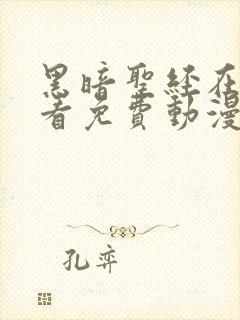 黑暗聖经在
看免費動漫
孔弈